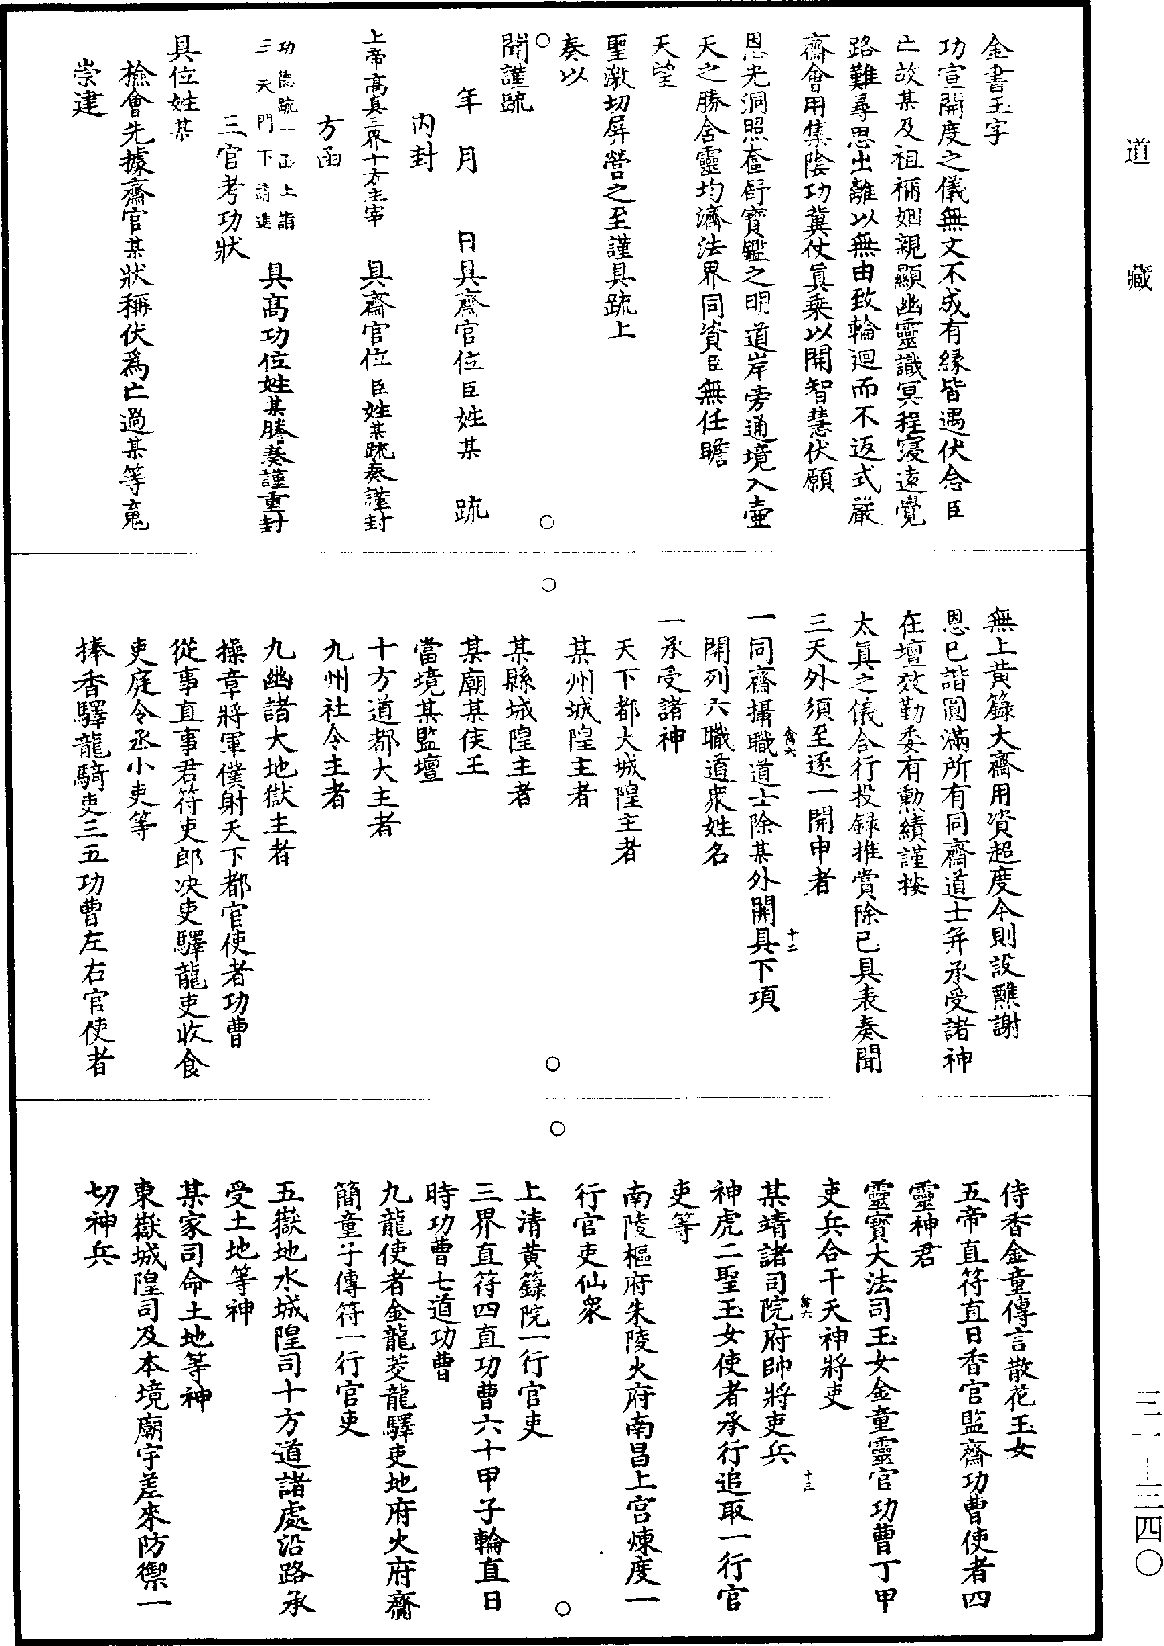 道藏
金書玉字
功宣開度之儀無文不成有緣皆遇伏念臣
亡故某及祖禰姻親顯幽靈識冥程寖遠覺
路難尋思出離以無由致輪迴而不返式嚴
齋會用集陰功冀仗真乘以開智慧伏願
恩光洞照奎舒寶鑑之明道岸旁通境入壺
天之勝舍靈均濟法界同資臣無任瞻
天望
聖激切屏營之至謹具疏上
奏以
聞謹疏
年月　日具齋官位臣姓某　疏
內封
上帝高真三界十方主宰　具齋官位臣姓某疏奏謹封
方函
功德疏一函上詣
三天門下請進　具高功位姓某謄奏謹重封
三官考功狀
具位姓某
檢會先據齋官某狀稱伏為亡過某等䰟
崇建
無上黃籙大齋用資超度今則設醮謝
恩已諧圓滿所有同齋道士并承受諸神
在壇效勤委有勳績謹按
太真之儀合行投錄推賞除已具表奏聞
三天外須至逐一開申者
一同齋攝職道士除某外開具下項
開列六職道眾姓名
一承受諸神
天下都大城隍主者
某州城隍主者
某縣城隍主者
某廟某侯王
當境某監壇
十方道都大主者
九州社令主者
九幽諸大地獄主者
操章將軍僕射天下都官使者功曹
從事直事君符吏郎决吏驛龍吏收食
吏庭令丞小吏等
捧香驛龍騎吏三五功曹左右官使者
侍香金童傳言散花玉女
五帝直符直日香官監齋功曹使者四
靈神君
靈寶大法司玉女金童靈官功曹丁甲
吏兵合干天神將吏
某靖諸司院府帥將吏兵
神虎二聖玉女使者承行追取一行官
吏等
南陵樞府朱陵火府南昌上宮煉度一
行官吏仙眾
上清黃籙院一行官吏
三界直符四直功曹六十甲子輪直日
時功曹七道功曹
九龍使者金龍茭龍驛吏地府火府齋
簡童子傳符一行官吏
五嶽地水城隍司十方道諸處沿路承
受土地等神
某家司命土地等神
東嶽城隍司及本境廟宇差來防禦一
切神兵
十二
十三
三一－三四〇